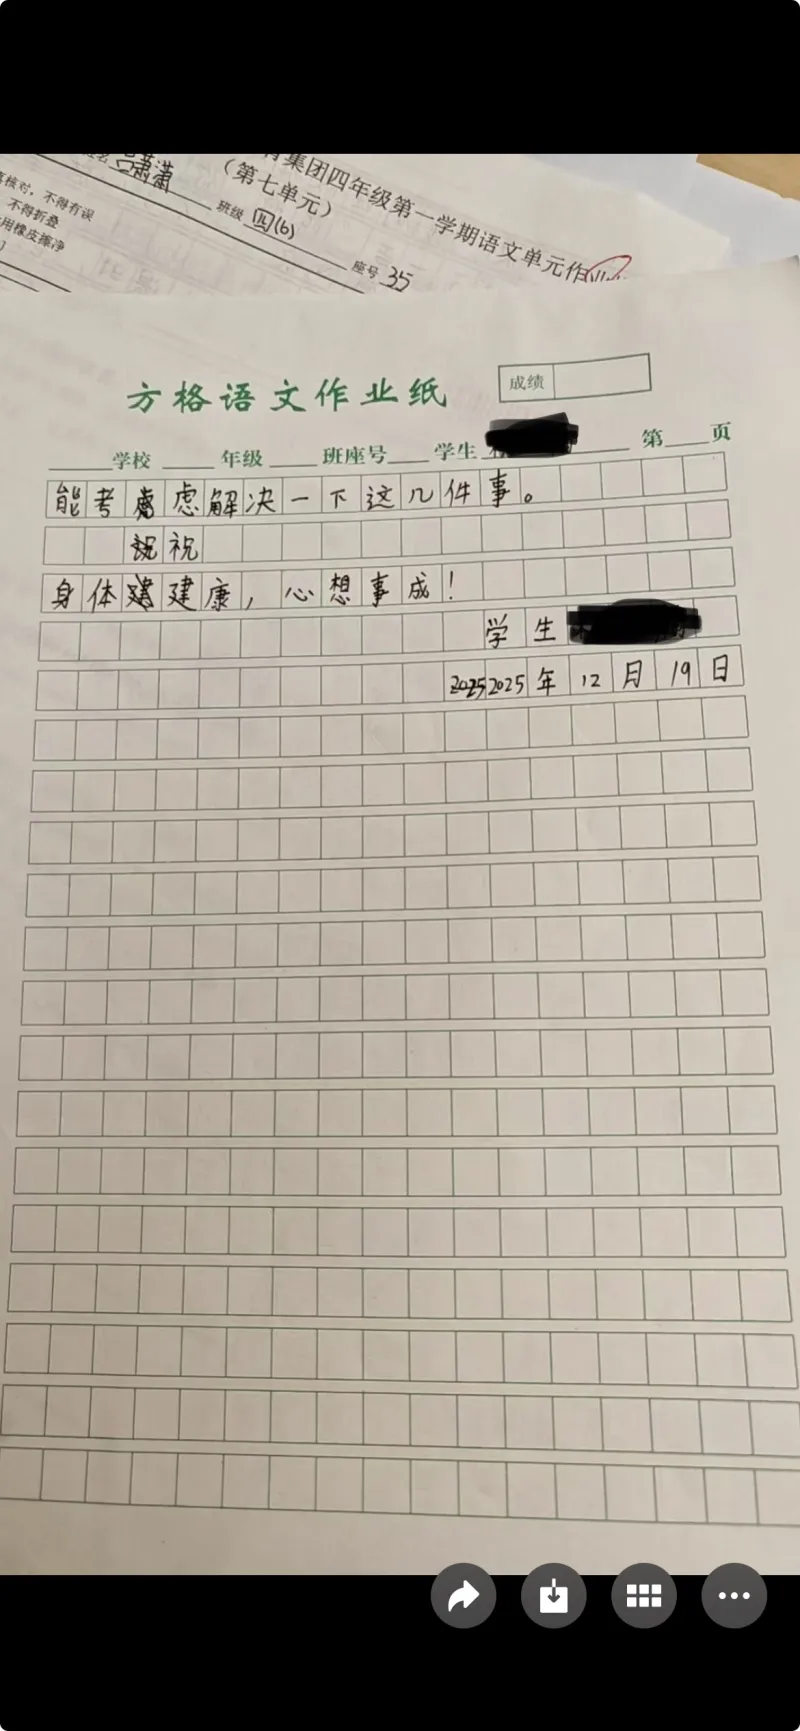 集团四年级第一学期语文单元作业
（第七单元）
潇潇
班级 四(6)
座号 35
核对，不得有误
不得折叠
用橡皮擦净
方格语文作业纸
成绩
学校 年级 班座号 学生 第 页
能考虑虑解决一下这几件事。
祝祝
身体建建康，心想事成！
学生
20252025年12月19日